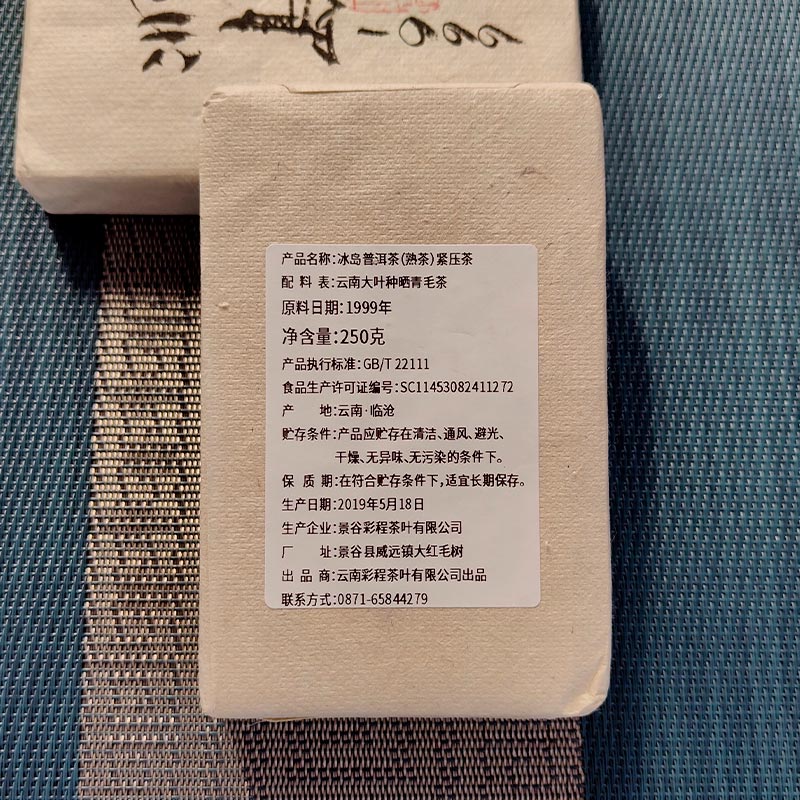 1999
产品名称:冰岛普洱茶(熟茶)紧压茶
配 料 表:云南大叶种晒青毛茶
原料日期:1999年
净含量:250克
产品执行标准:GB/T 22111
食品生产许可证编号:SC11453082411272
产 地:云南·临沧
贮存条件:产品应贮存在清洁、通风、避光、
干燥、无异味、无污染的条件下。
保 质 期:在符合贮存条件下,适宜长期保存。
生产日期:2019年5月18日
生产企业:景谷彩程茶叶有限公司
厂 址:景谷县威远镇大红毛树
出 品 商:云南彩程茶叶有限公司出品
联系方式:0871-65844279